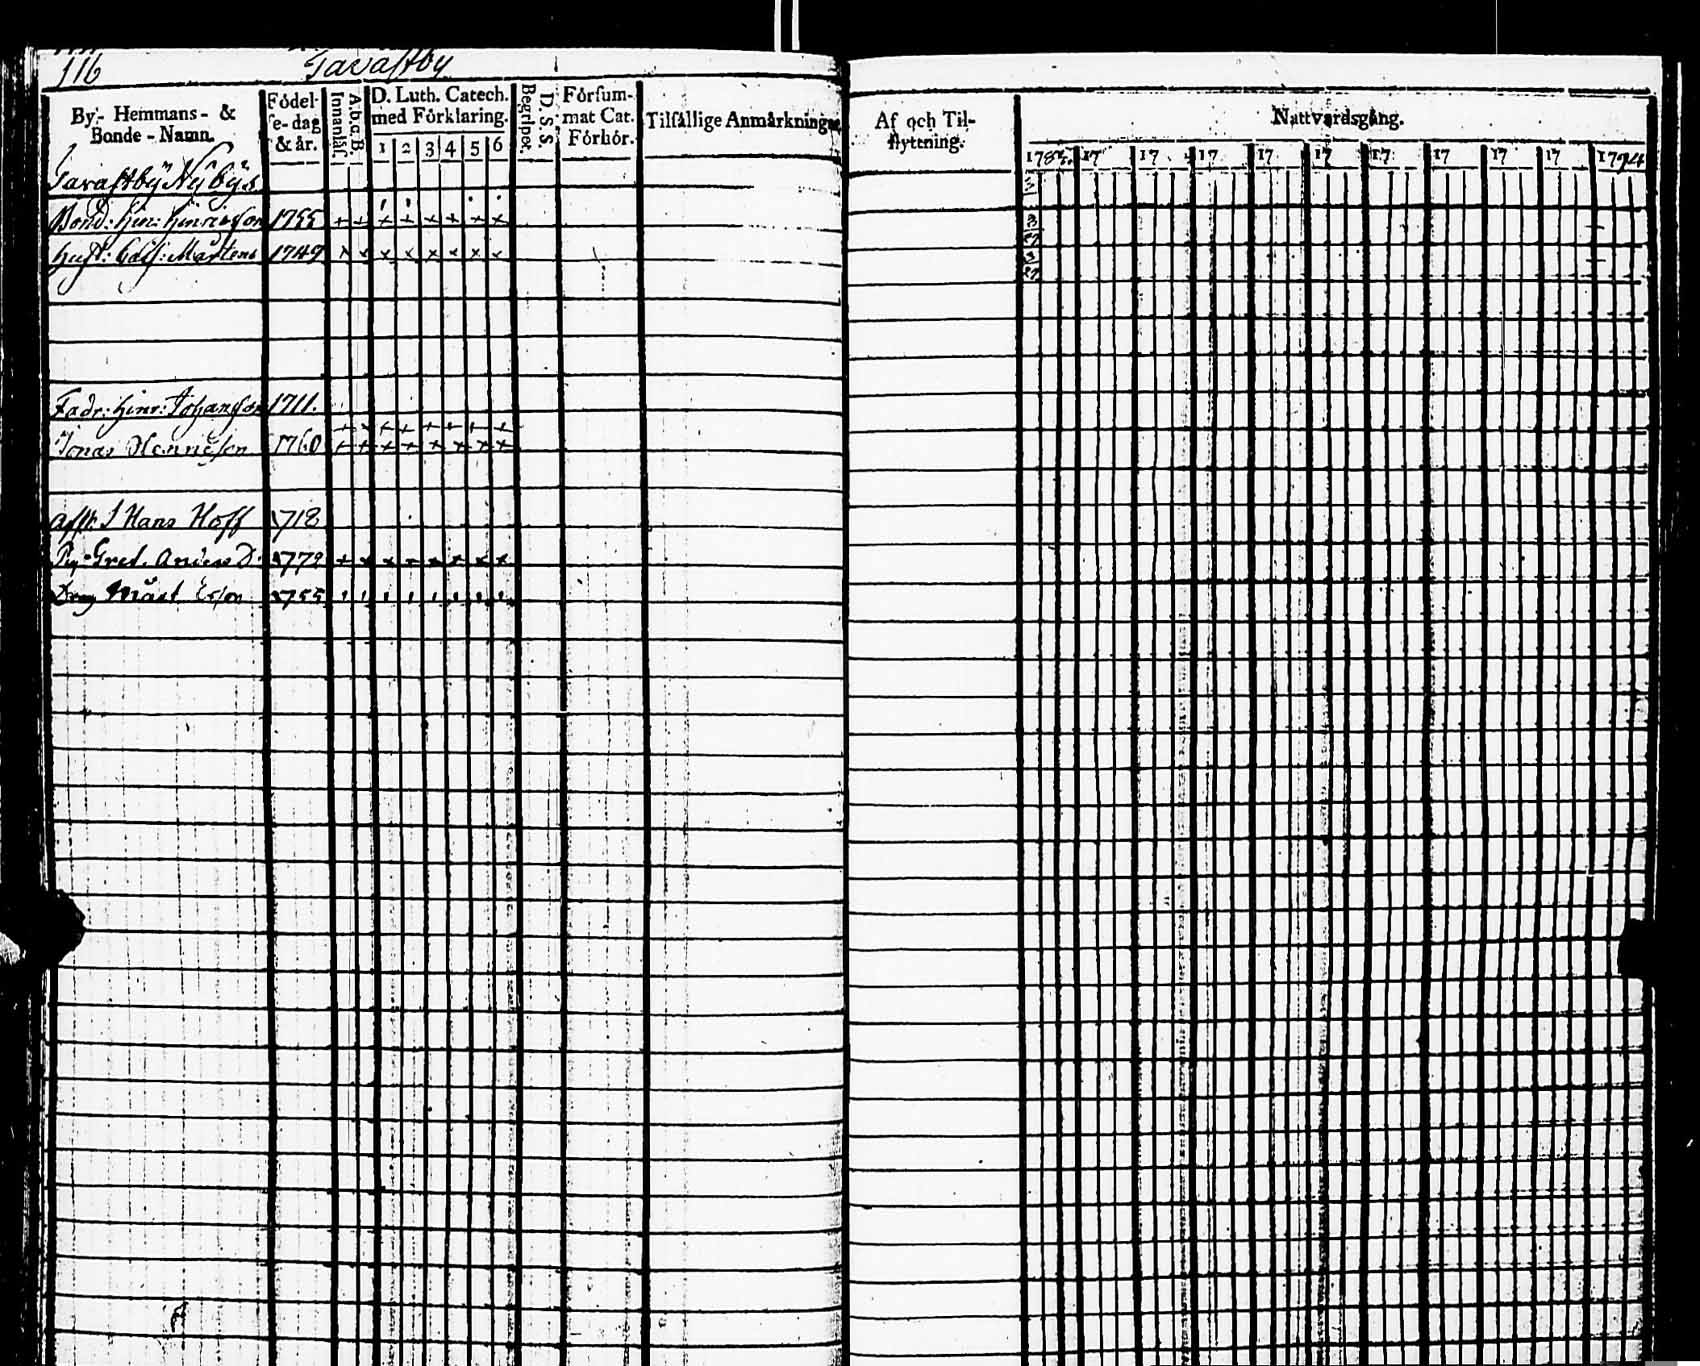 116
Tavastby
By- Hemmans- & Bonde-Namn.
Födelse-dag & år.
Innanläs.
A.b.c.B.
D. Luth. Catech. med Förklaring.
1 2 3 4 5 6
Begripet.
D. S. S.
Försummat Cat. Förhör.
Tilfällige Anmärkningar
Af och Tilflyttning.
Nattvardsgång.
17 17 17 17 17 17 17 17 17 1794
Tavastby Nybys
Bond: Hin: Hinricsson 1755
Hust: Mårtens 1749
Fadr: Hinr: Johansson 1711.
Jonas Henricson 1760
Hans Hoff 1718
Gret. Anders D:
Mårt Ersson 1755